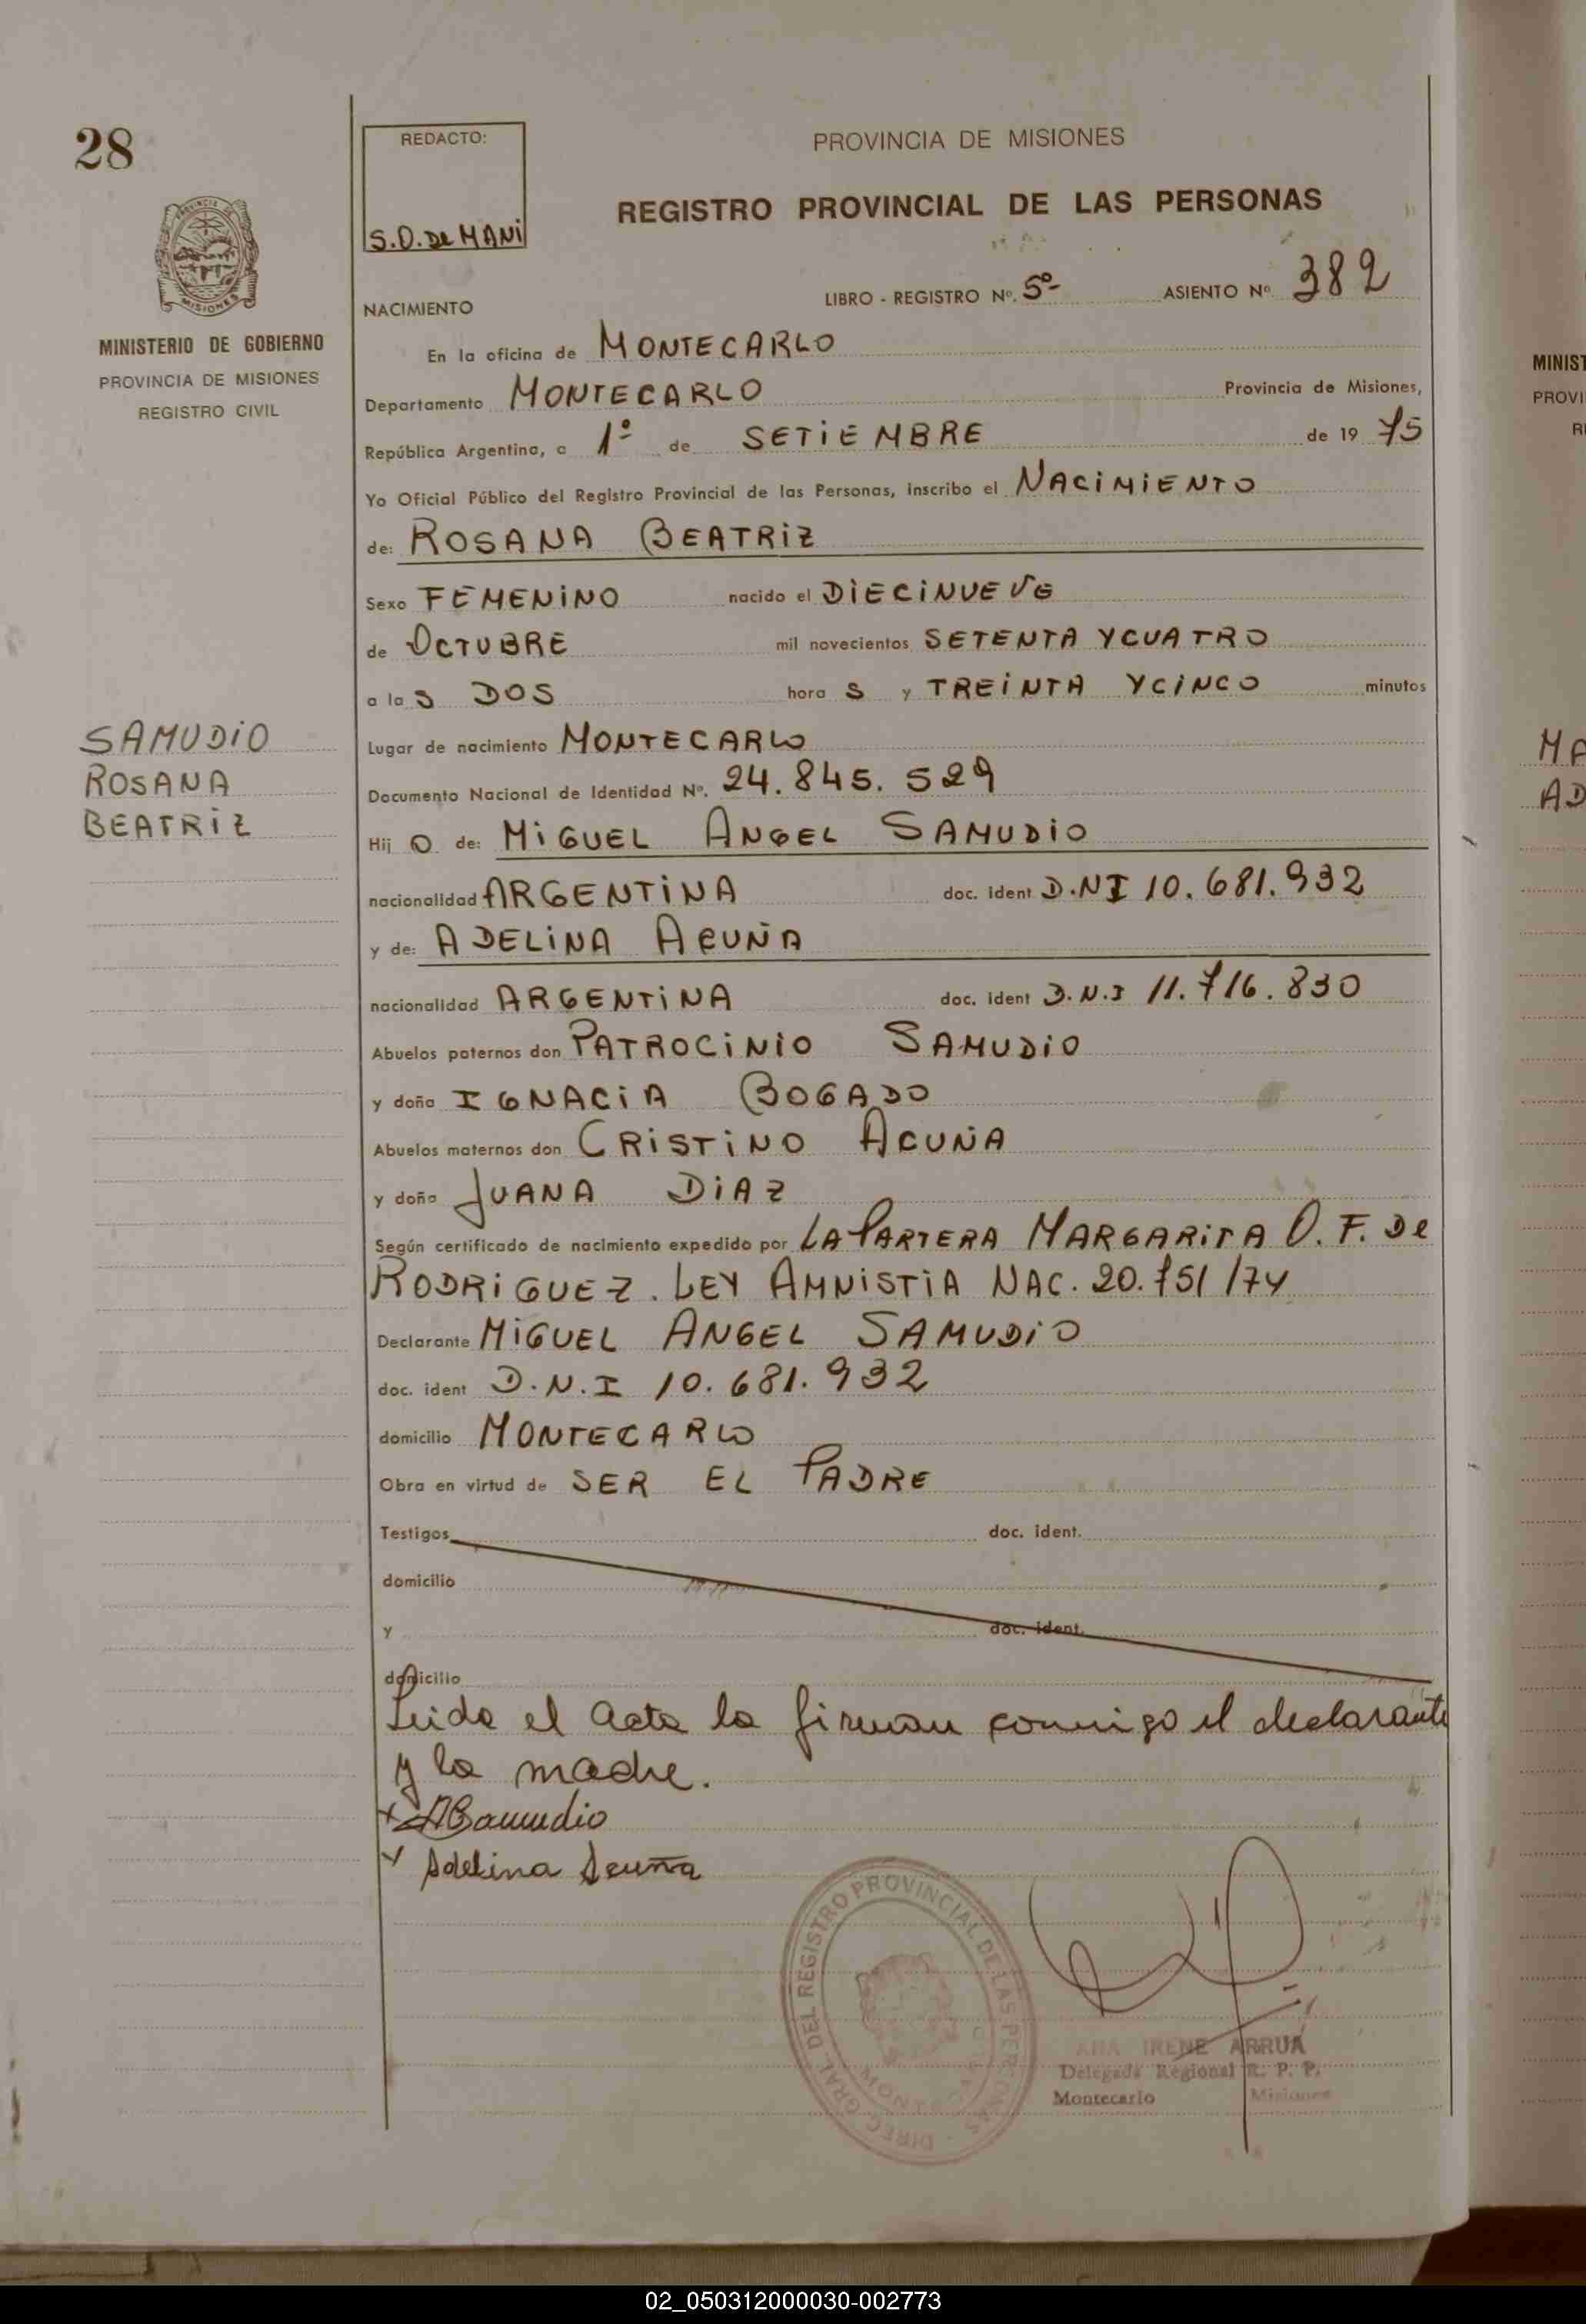 28
REDACTO:
S.O. De MANI
PROVINCIA DE MISIONES
REGISTRO PROVINCIAL DE LAS PERSONAS
MINISTERIO DE GOBIERNO
PROVINCIA DE MISIONES
REGISTRO CIVIL
NACIMIENTO LIBRO - REGISTRO Nº. 5º- ASIENTO Nº 382
En la oficina de MONTECARLO
Departamento MONTECARLO Provincia de Misiones,
República Argentina, a 1º de SETIEMBRE de 19 75
Yo Oficial Público del Registro Provincial de las Personas, inscribo el NACIMIENTO
de: ROSANA BEATRIZ
Sexo FEMENINO nacido el DIECINUEVE
de OCTUBRE mil novecientos SETENTA Y CUATRO
a la S DOS hora S y TREINTA Y CINCO minutos
SAMUDIO
ROSANA
BEATRIZ
Lugar de nacimiento MONTECARLO
Documento Nacional de Identidad Nº. 24.845.529
Hij O de: MIGUEL ANGEL SAMUDIO
nacionalidad ARGENTINA doc. ident D.NI 10.681.932
y de: ADELINA ACUÑA
nacionalidad ARGENTINA doc. ident D.N.I 11.716.830
Abuelos paternos don PATROCINIO SAMUDIO
y doña IGNACIA BOGADO
Abuelos maternos don CRISTINO ACUÑA
y doña JUANA DIAZ
Según certificado de nacimiento expedido por LA PARTERA MARGARITA O. F. De
RODRIGUEZ. LEY AMNISTIA NAC. 20.751/74
Declarante MIGUEL ANGEL SAMUDIO
doc. ident D.N.I 10.681.932
domicilio MONTECARLO
Obra en virtud de SER EL PADRE
Testigos doc. ident.
domicilio
y doc. ident.
domicilio
Leida el acta la firman conmigo el declarante
y la madre.
Samudio
Adelina Acuña
DIREC. GRAL. DEL REGISTRO PROVINCIAL DE LAS PERSONAS
ANA IRENE ARRUA
Delegada Regional R. P. P.
Montecarlo Misiones
MINIST
PROVI
R
MA
AD
02_050312000030-002773